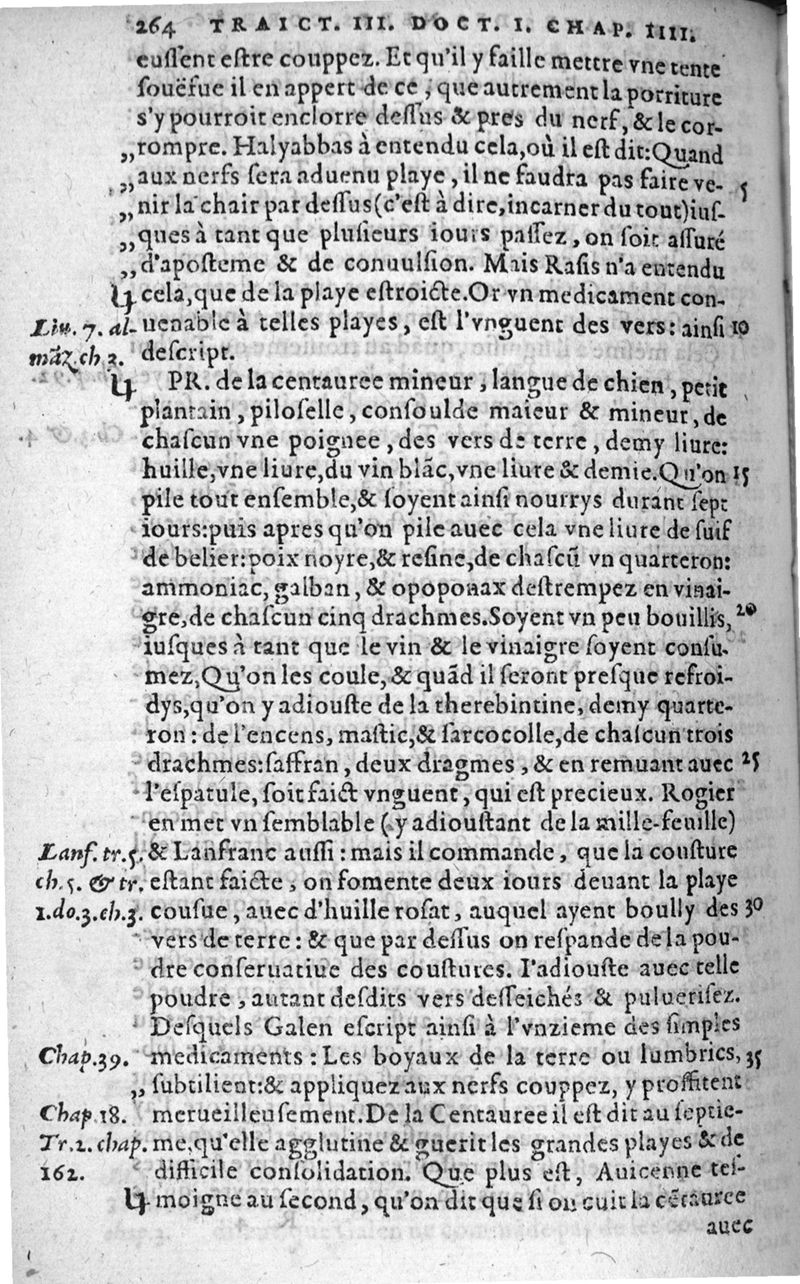 264 TRAICT. III. DOCT. I. CHAP. IIII.
eussent estre couppez. Et qu'il y faille mettre vne tente
souëfue il en appert de ce, que autrement la porriture
s'y pourroit enclorre dessus & pres du nerf, & le cor-
„rompre. Halyabbas à entendu cela, où il est dit: Quand
„aux nerfs sera aduenu playe, il ne faudra pas faire ve- 5
„nir la chair par dessus (c'est à dire, incarner du tout) ius-
„ques à tant que plusieurs iours passez, on soit assuré
„d'aposteme & de conuulsion. Mais Rasis n'a entendu
cela, que de la playe estroicte. Or vn medicament con-
Liu. 7. al- uenable à telles playes, est l'vnguent des vers: ainsi 10
mãz. ch 3. descript.
PR. de la centauree mineur, langue de chien, petit
plantain, piloselle, consoulde maieur & mineur, de
chascun vne poignee, des vers de terre, demy liure:
huille, vne liure, du vin blãc, vne liure & demie. Qu'on 15
pile tout ensemble, & soyent ainsi nourrys durant sept
iours: puis apres qu'on pile auec cela vne liure de suif
de belier: poix noyre, & resine, de chascũ vn quarteron:
ammoniac, galban, & opoponax destrempez en vinai-
gre, de chascun cinq drachmes. Soyent vn peu bouillis, 20
iusques à tant que le vin & le vinaigre soyent consu-
mez, Qu'on les coule, & quãd il seront presque refroi-
dys, qu'on y adiouste de la therebintine, demy quarte-
ron: de l'encens, mastic, & sarcocolle, de chascun trois
drachmes: saffran, deux dragmes, & en remuant auec 25
l'espatule, soit faict vnguent, qui est precieux. Rogier
en met vn semblable (y adioustant de la mille-feuille)
Lanf. tr. 5. & Lanfranc aussi: mais il commande, que la cousture
ch. 5. & tr. estant faicte, on fomente deux iours deuant la playe
1. do. 3. ch. 3. cousue, auec d'huille rosat, auquel ayent boully des 30
vers de terre: & que par dessus on respande de la pou-
dre conseruatiue des coustures. I'adiouste auec telle
poudre, autant desdits vers desseichés & puluerisez.
Desquels Galen escript ainsi à l'vnzieme des simples
Chap. 39. medicaments: Les boyaux de la terre ou lumbrics, 35
„ subtilient: & appliquez aux nerfs couppez, y proffitent
Chap 18. merueilleusement. De la Centauree il est dit au septie-
Tr. 2. chap. me, qu'elle agglutine & guerit les grandes playes & de
162. difficile consolidation. Que plus est, Auicenne tes-
moigne au second, qu'on dit que si on cuit la cẽtauree
auec